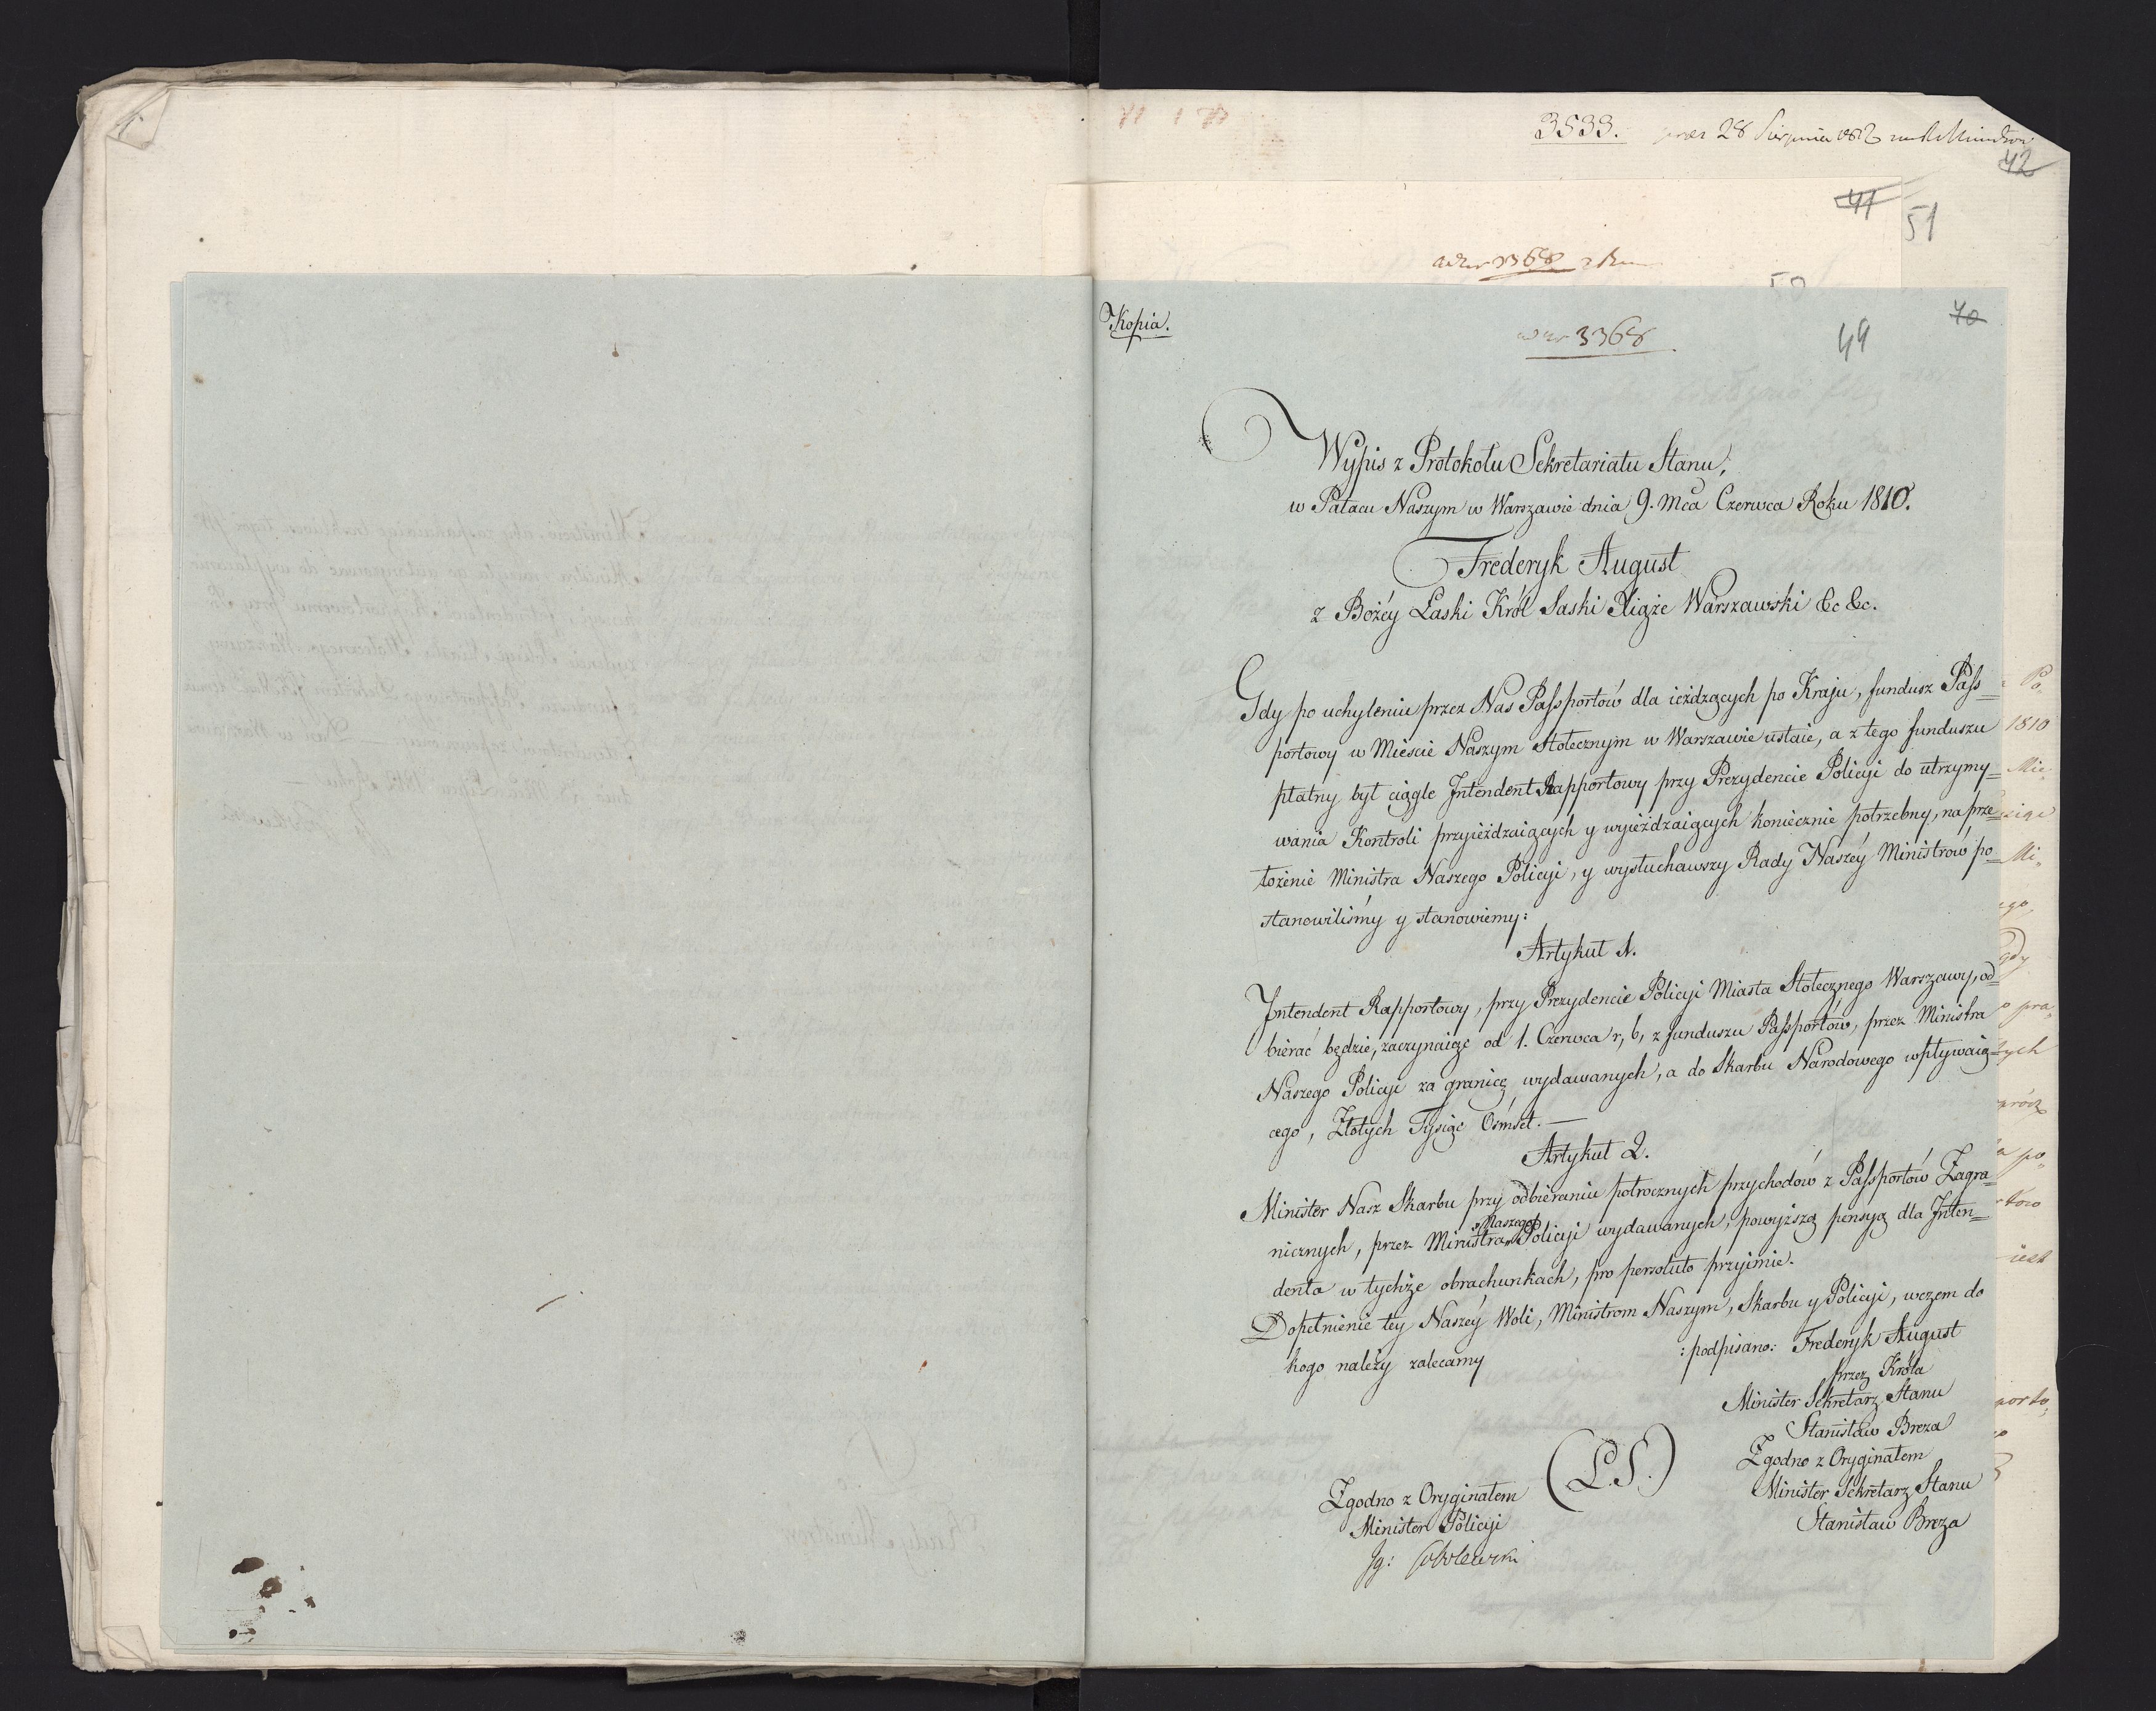 3533. 28 Sierpnia 1812
42
41
51
3368
50
Kopia.
3368
49
40
Wypis z Protokołu Sekretariatu Stanu,
w Pałacu Naszym w Warszawie dnia 9. Mca Czerwca Roku 1810.
Frederyk August
z Bożéy Łaski Król Saski Xiąże Warszawski &c &c.
Gdy po uchyleniu przez Nas Passportów dla ieżdzących po Kraju, fundusz Pass=
portowy w Mieście Naszym Stołecznym w Warszawie ustaie, a z tego funduszu
płatny był ciągle Intendent Rapportowy przy Prezydencie Policyi do utrzymy=
wania Kontroli przyieżdzaiących y wyieżdzaiących koniecznie potrzebny, na prze=
łożenie Ministra Naszego Policyi, y wysłuchawszy Rady Naszéy Ministrów po=
stanowiliśmy y stanowiemy:
Artykuł 1.
Intendent Rapportowy, przy Prezydencie Policyi Miasta Stołecznego Warszawy, od=
bierać będzie, zaczynaiąc od 1. Czerwca r, b, z funduszu Passportów, przez Ministra
Naszego Policyi za granicę wydawanych, a do Skarbu Narodowego wpływaią=
cego, Złotych Tysiąc Ośmset. —
Artykuł 2.
Minister Nasz Skarbu przy odbieraniu półrocznych przychodów z Passportów Zagra=
nicznych, przez Ministra Naszego Policyi wydawanych, powyższą pensyą dla Inten=
denta w tychże obrachunkach, pro persoluto przyimie.
Dopełnienie tey Naszéy Woli, Ministrom Naszym, Skarbu y Policyi, wczem do
kogo należy zalecamy
: podpisano: Frederyk August
przez Króla
Minister Sekretarz Stanu
Stanisław Breza
(L.S.)
Zgodno z Oryginałem
Minister Sekretarz Stanu
Stanisław Breza
Zgodno z Oryginałem
Minister Policyi
Ig: Sobolewski
1810